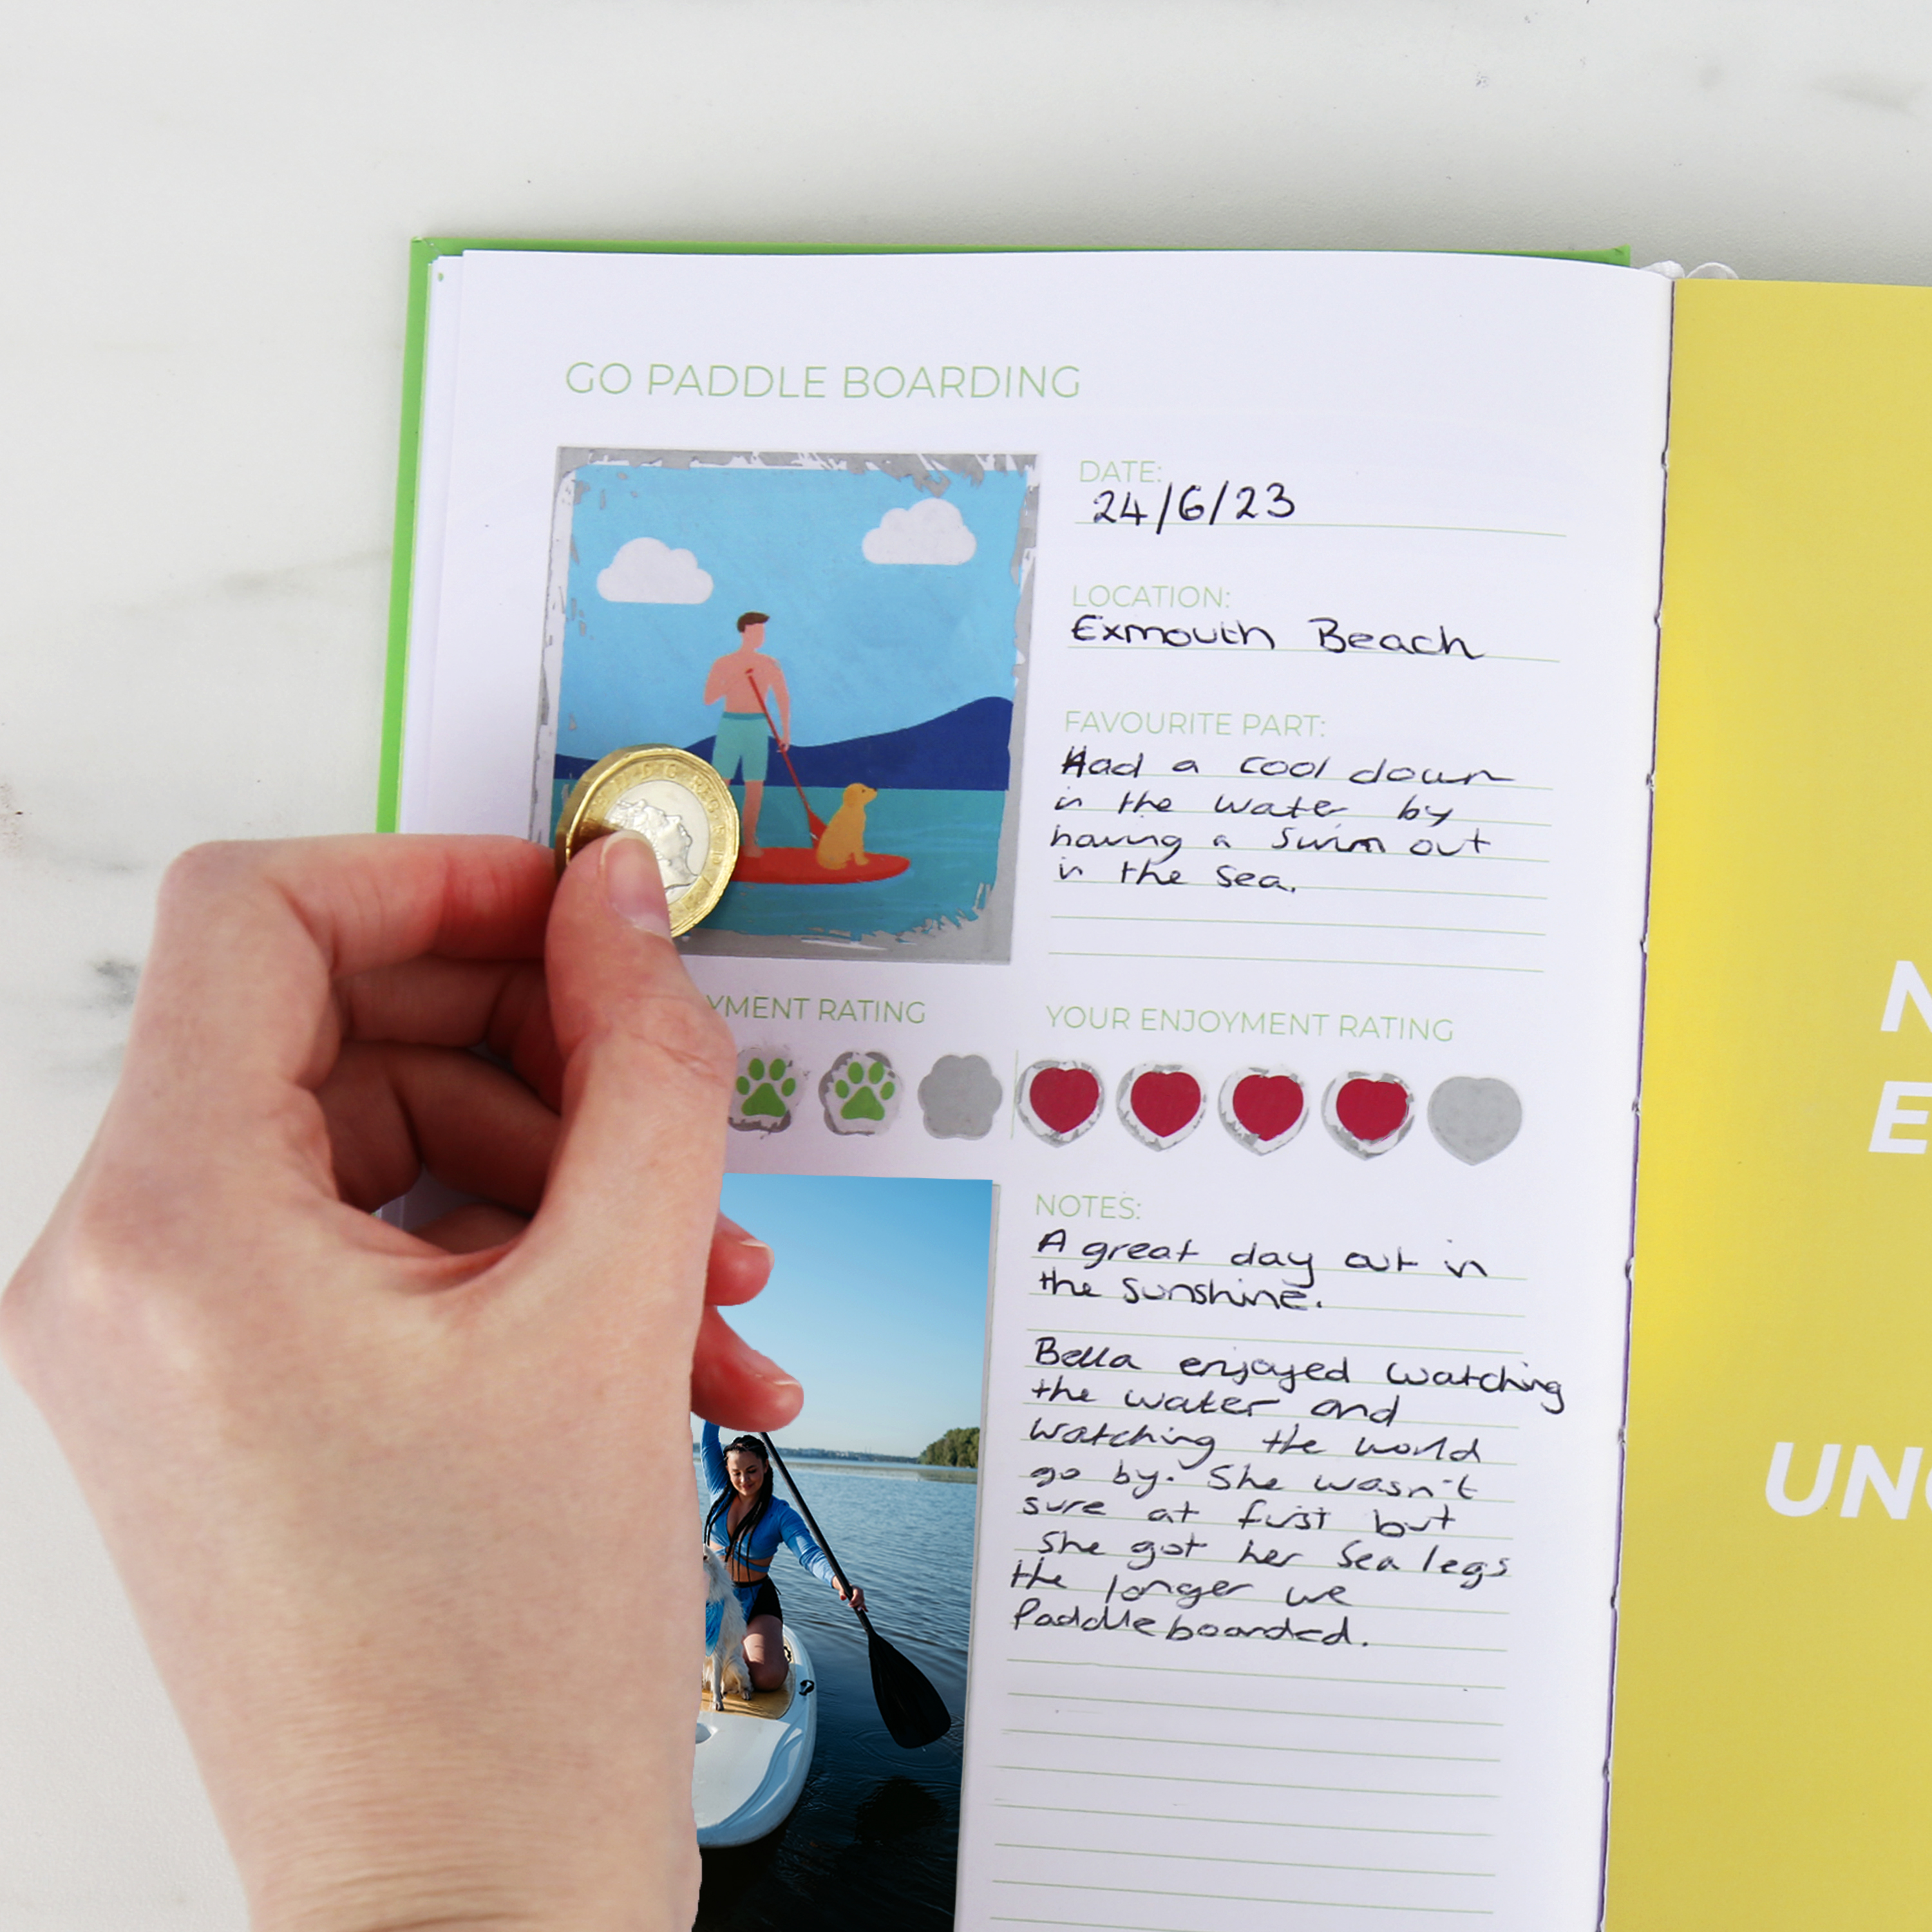 GO PADDLE BOARDING
DATE:
24/6/23
LOCATION:
Exmouth Beach
FAVOURITE PART:
Had a cool down
in the water by
having a swim out
in the sea.
YMENT RATING
YOUR ENJOYMENT RATING
NOTES:
A great day out in
the sunshine.
Bella enjoyed watching
the water and
watching the world
go by. She wasn't
sure at first but
she got her sea legs
the longer we
Paddleboarded.
N
E
UN